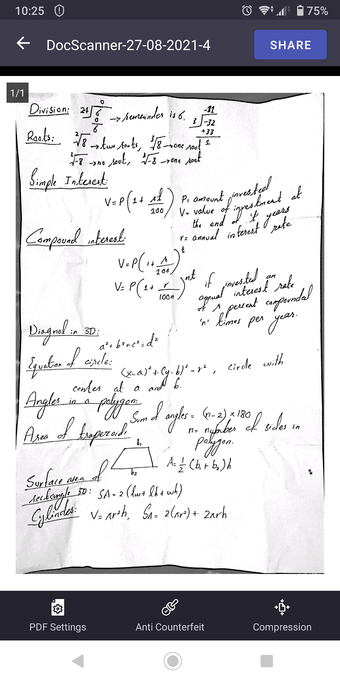 10:25 75%
DocScanner-27-08-2021-4 SHARE
1/1
Division: 24√6 → remainder is 6. 3√-32
0 -11
0 +33
6 1
Roots: ²√8 → two roots, ³√8 → one root
²√-8 → no root, ³√-8 → one root
Simple Interest:
V = P(1 + rt/100) P = amount invested
V = value of investment at
the end of 't' years
r = annual interest rate
Compound interest:
V = P(1 + r/100)^t
V = P(1 + r/100n)^nt if invested an
annual interest rate
of r percent compounded
'n' times per year.
Diagnol in 3D:
a² + b² + c² = d²
Equation of circle:
(x-a)² + (y-b)² = r², circle with
center at a and b.
Angles in a polygon:
Sum of angles = (n-2) × 180
n = number of sides in
polygon.
Area of trapezoid:
b₁
b₂
A = 1/2 (b₁ + b₂)h
Surface area of
rectangle 3D: SA = 2(lw + lh + wh)
Cylinder: V = πr²h, SA = 2(πr²) + 2πrh
PDF Settings Anti Counterfeit Compression